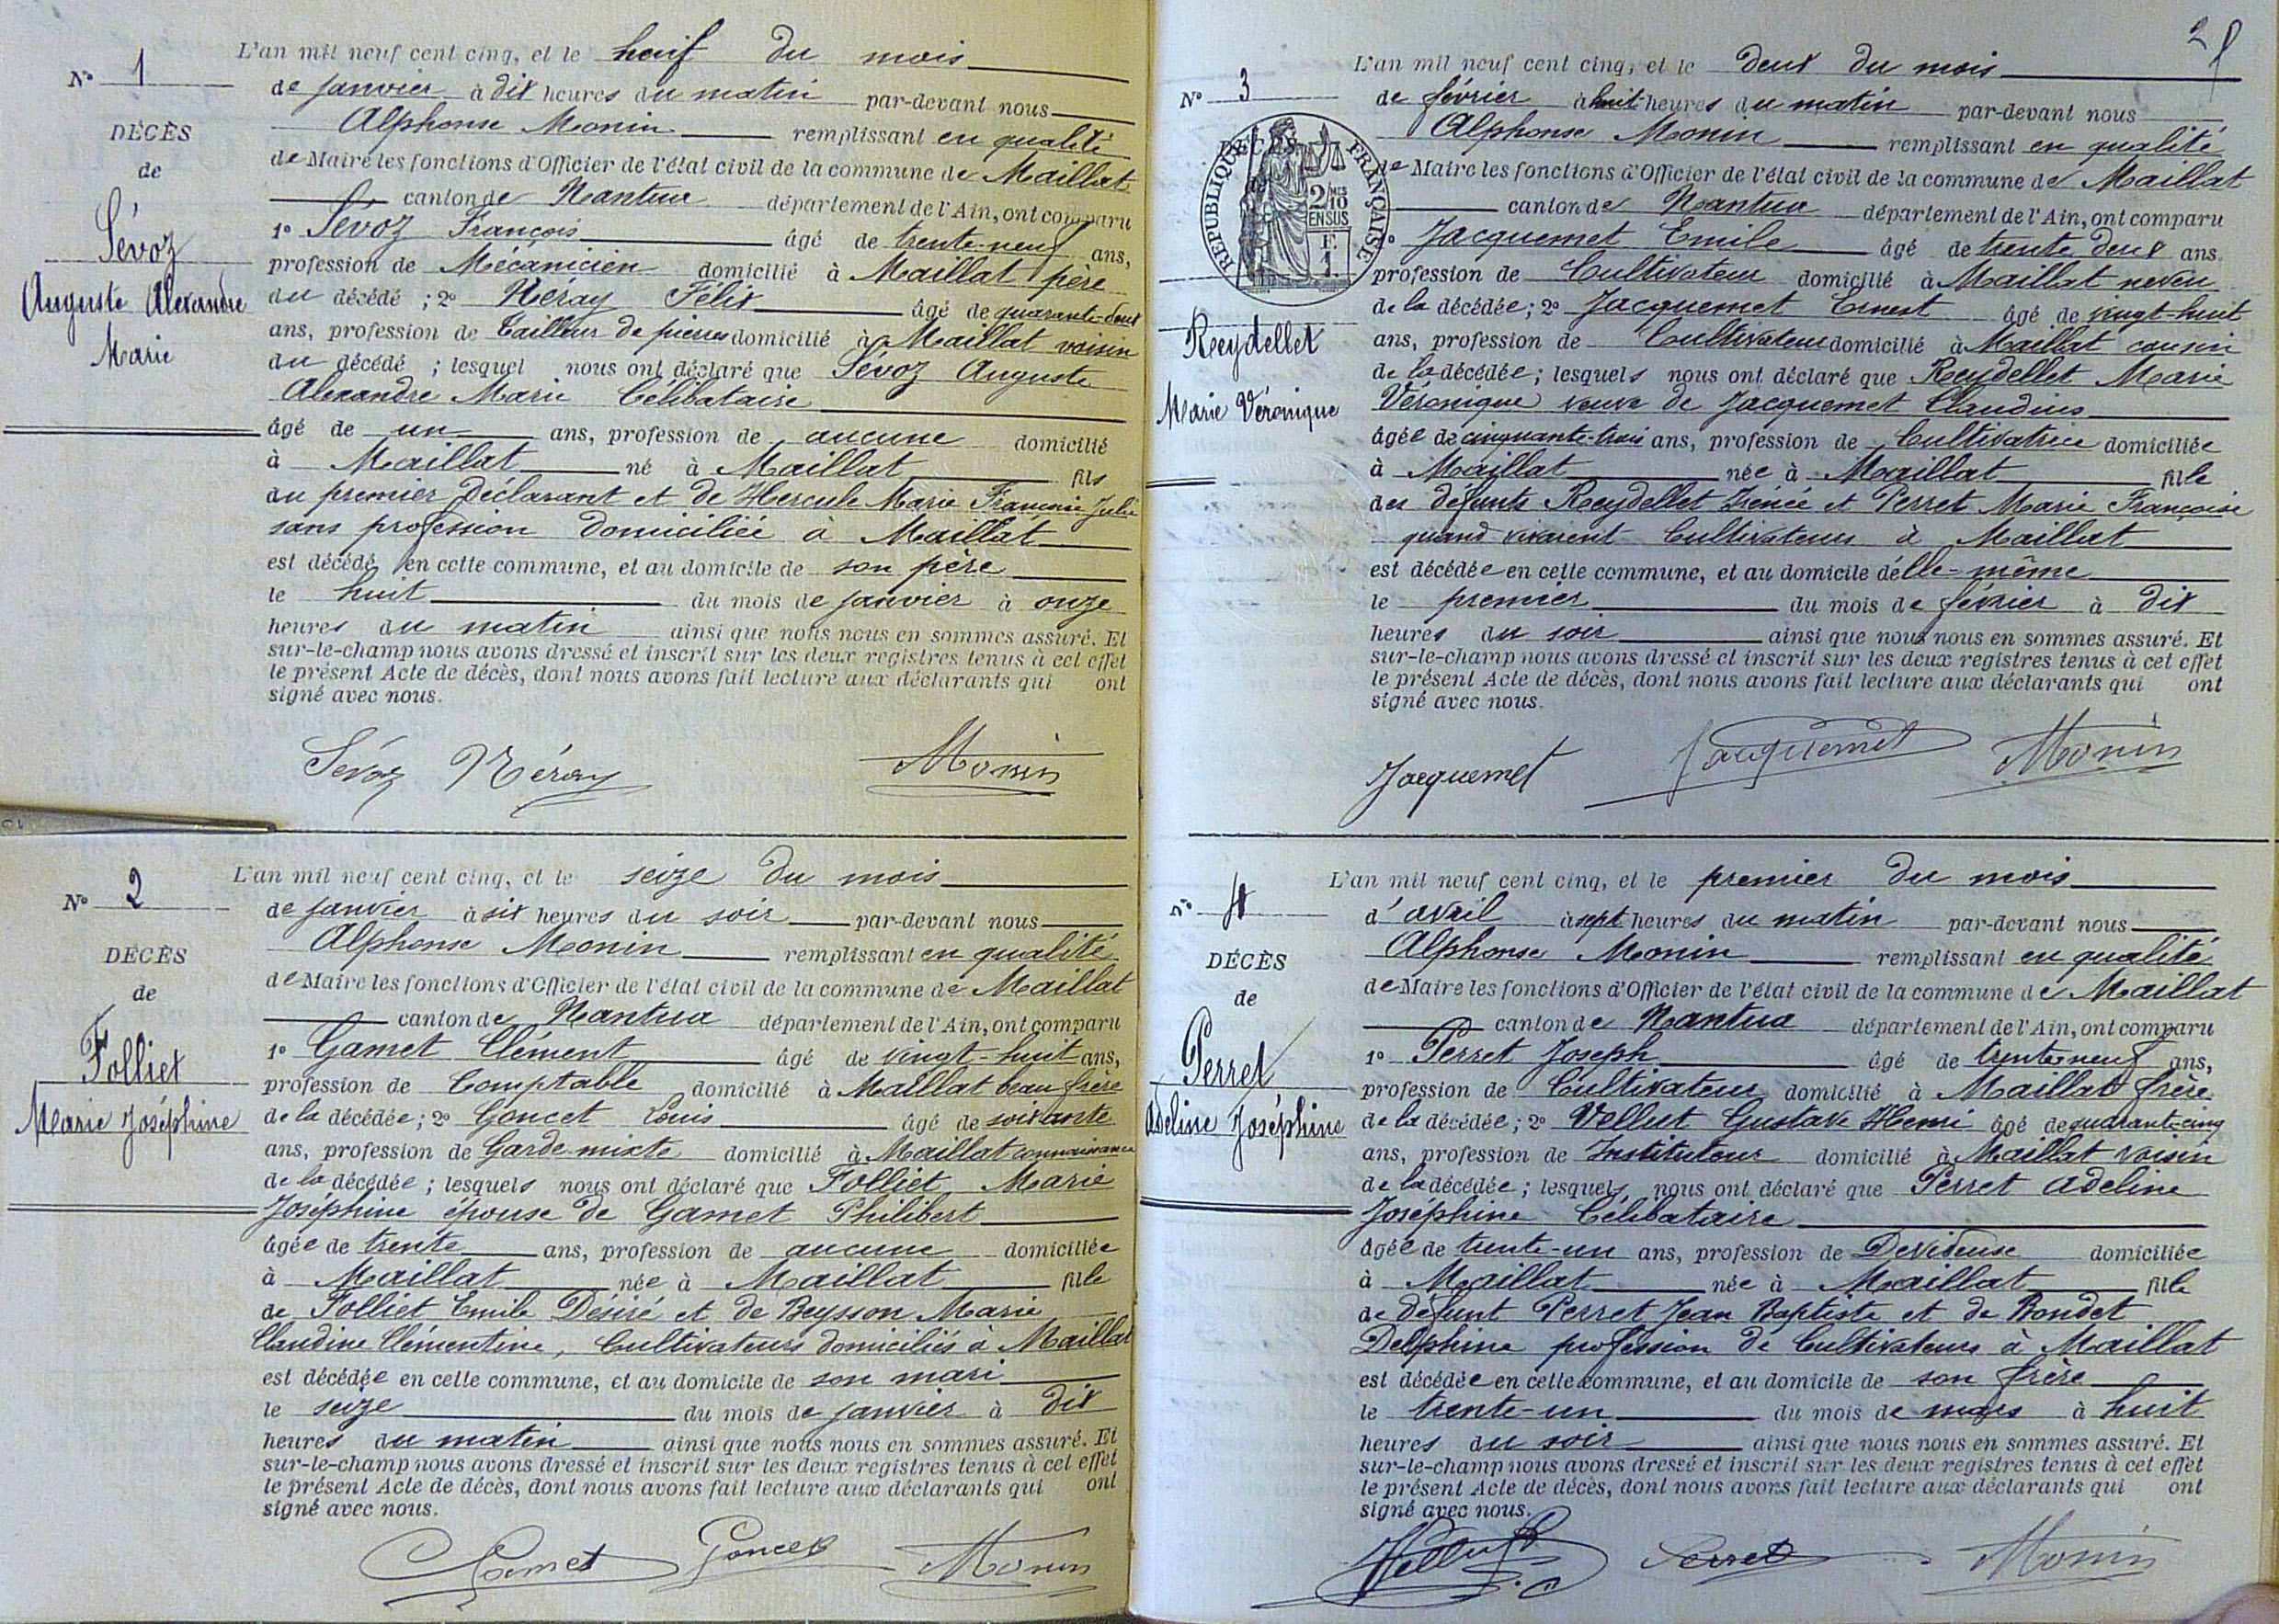 N° 1
DÉCÈS
de
Sévoz
Auguste Alexandre
Marie
L'an mil neuf cent cinq, et le neuf du mois
de janvier à dix heures du matin par-devant nous
Alphonse Monin remplissant en qualité
de Maire les fonctions d'Officier de l'état civil de la commune de Maillat
canton de Nantua département de l'Ain, ont comparu
1° Sévoz François âgé de trente-neuf ans,
profession de Mécanicien domicilié à Maillat père
du décédé ; 2° Néray Félix âgé de quarante-deux
ans, profession de Tailleur de pierres domicilié à Maillat voisin
du décédé ; lesquel nous ont déclaré que Sévoz Auguste
Alexandre Marie Célibataire
âgé de un ans, profession de aucune domicilié
à Maillat né à Maillat fils
du premier Déclarant et de Hercule Marie Françoise Julie
sans profession domiciliée à Maillat
est décédé en cette commune, et au domicile de son père
le huit du mois de janvier à onze
heures du matin ainsi que nous nous en sommes assuré. Et
sur-le-champ nous avons dressé et inscrit sur les deux registres tenus à cet effet
le présent Acte de décès, dont nous avons fait lecture aux déclarants qui ont
signé avec nous.
Sévoz Néray Monin
N° 2
DÉCÈS
de
Folliet
Marie Joséphine
L'an mil neuf cent cinq, et le seize du mois
de janvier à six heures du soir par-devant nous
Alphonse Monin remplissant en qualité
de Maire les fonctions d'Officier de l'état civil de la commune de Maillat
canton de Nantua département de l'Ain, ont comparu
1° Gamet Clément âgé de vingt-huit ans,
profession de Comptable domicilié à Maillat beau frère
de la décédée ; 2° Goncet Louis âgé de soixante
ans, profession de Garde-mixte domicilié à Maillat connaissance
de la décédée ; lesquels nous ont déclaré que Folliet Marie
Joséphine épouse de Gamet Philibert
âgée de trente ans, profession de aucune domiciliée
à Maillat née à Maillat fille
de Folliet Emile Désiré et de Beysson Marie
Claudine Clémentine, Cultivateurs domiciliés à Maillat
est décédée en cette commune, et au domicile de son mari
le seize du mois de janvier à dix
heures du matin ainsi que nous nous en sommes assuré. Et
sur-le-champ nous avons dressé et inscrit sur les deux registres tenus à cet effet
le présent Acte de décès, dont nous avons fait lecture aux déclarants qui ont
signé avec nous.
Gamet Goncet Monin
N° 3
RÉPUBLIQUE FRANÇAISE
2/10 EN SUS
F. 1.
Reydellet
Marie Véronique
L'an mil neuf cent cinq, et le deux du mois
de février à huit heures du matin par-devant nous
Alphonse Monin remplissant en qualité
de Maire les fonctions d'Officier de l'état civil de la commune de Maillat
canton de Nantua département de l'Ain, ont comparu
1° Jacquemet Emile âgé de trente deux ans
profession de Cultivateur domicilié à Maillat neveu
de la décédée ; 2° Jacquemet Ernest âgé de vingt-huit
ans, profession de Cultivateur domicilié à Maillat cousin
de la décédée ; lesquels nous ont déclaré que Reydellet Marie
Véronique veuve de Jacquemet Claudius
âgée de cinquante-trois ans, profession de Cultivatrice domiciliée
à Maillat née à Maillat fille
des défunts Reydellet Irenée et Perret Marie Françoise
quand vivaient Cultivateurs à Maillat
est décédée en cette commune, et au domicile d'elle-même
le premier du mois de février à dix
heures du soir ainsi que nous nous en sommes assuré. Et
sur-le-champ nous avons dressé et inscrit sur les deux registres tenus à cet effet
le présent Acte de décès, dont nous avons fait lecture aux déclarants qui ont
signé avec nous.
Jacquemet Jacquemet Monin
N° 4
DÉCÈS
de
Perret
Adeline Joséphine
L'an mil neuf cent cinq, et le premier du mois
d'avril à sept heures du matin par-devant nous
Alphonse Monin remplissant en qualité
de Maire les fonctions d'Officier de l'état civil de la commune de Maillat
canton de Nantua département de l'Ain, ont comparu
1° Perret Joseph âgé de trente-neuf ans,
profession de Cultivateur domicilié à Maillat frère
de la décédée ; 2° Vellut Gustave Henri âgé de quarante-cinq
ans, profession de Instituteur domicilié à Maillat voisin
de la décédée ; lesquels nous ont déclaré que Perret Adeline
Joséphine Célibataire
âgée de trente-un ans, profession de Devideuse domiciliée
à Maillat née à Maillat fille
de défunt Perret Jean Baptiste et de Bondet
Delphine profession de Cultivateurs à Maillat
est décédée en cette commune, et au domicile de son frère
le trente-un du mois de mars à huit
heures du soir ainsi que nous nous en sommes assuré. Et
sur-le-champ nous avons dressé et inscrit sur les deux registres tenus à cet effet
le présent Acte de décès, dont nous avons fait lecture aux déclarants qui ont
signé avec nous.
Vellut Perret Monin